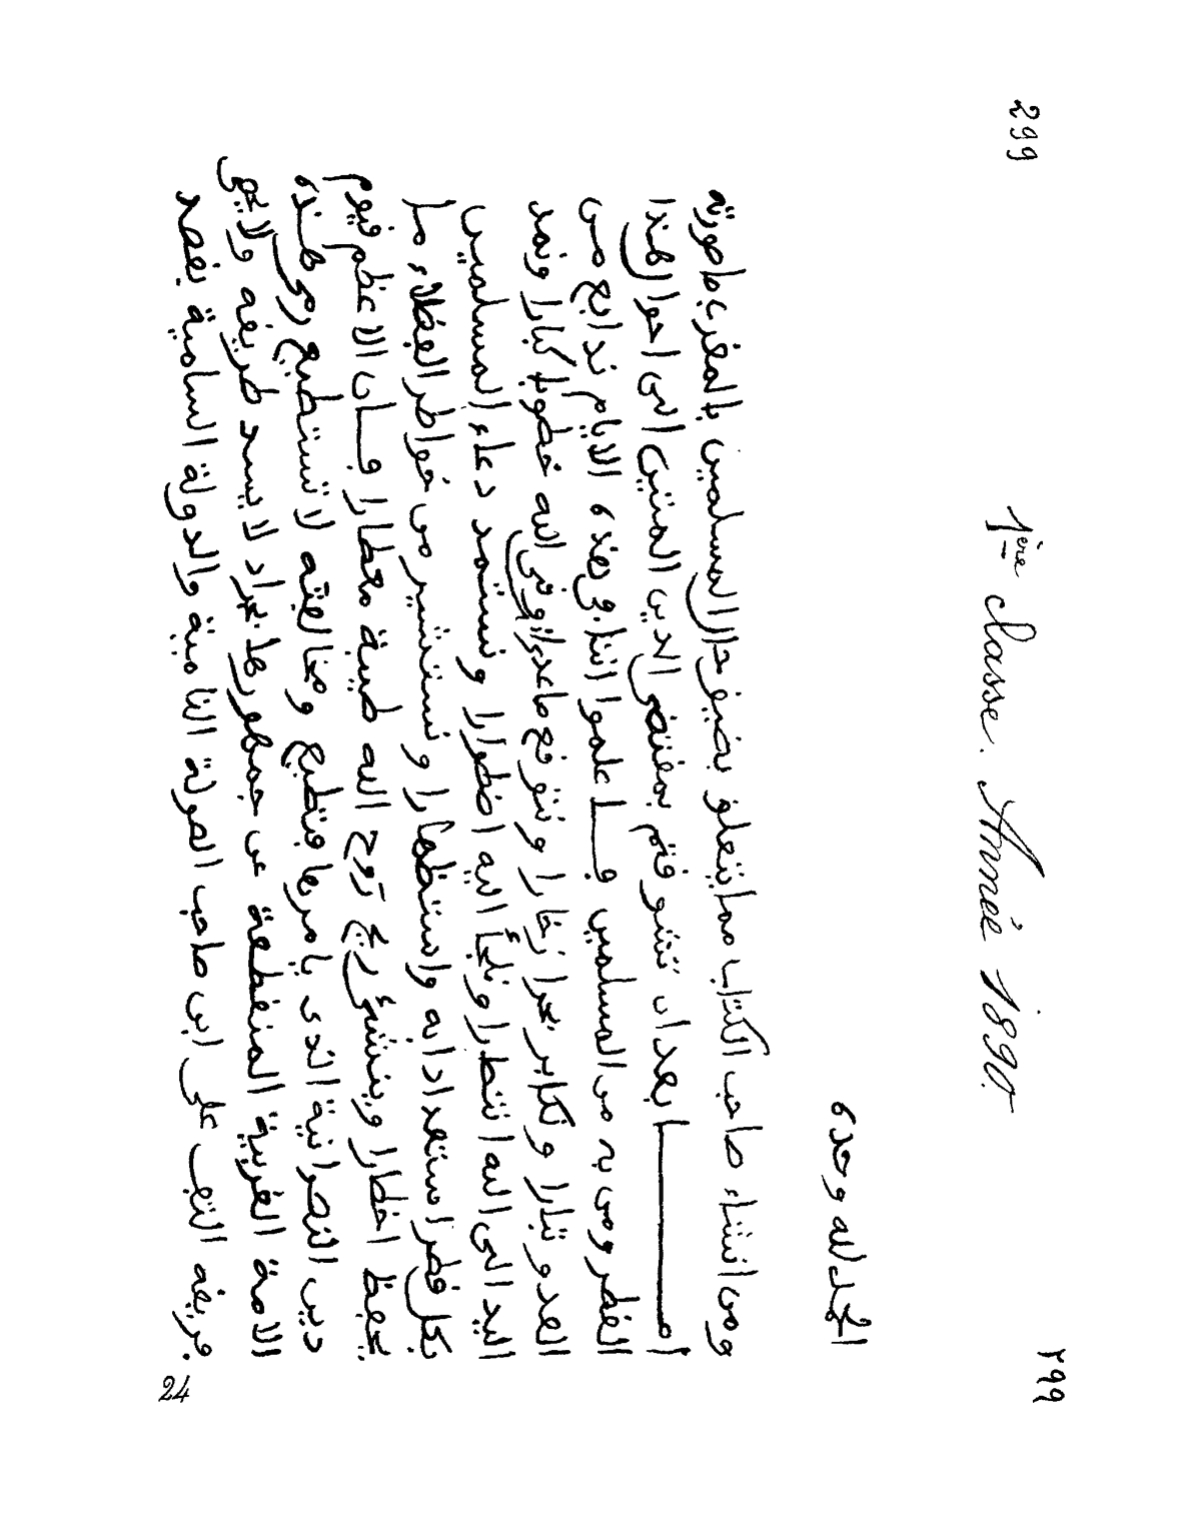 299
٢٩٩
1ère classe. Année 1890.
الحمد لله وحده
ومن انشاء صاحب الكتاب مما يتعلق بضيف دار المسلمين بالمغرب ما صورته
أمـــــا بعد ان تشوفتم بمقتضى الدين المتين الى احوال هذا
القطر ومن به من المسلمين فــاعلموا اننا في هذه الايام ندابع من
العدو تيارا ونكابر بحرا زخارا ونتوقع ما عدا إن وفى الله خطوبا كبارا ونمد
اليد الى الله انتظارا ونلجأ اليه اضطرارا ونستمد دعاء المسلمين
بكل قطر استعدادا به واستظهارا ونستشير من خواطر الفضلاء ما
يحفظ اخطارا وينشئ ريح روح الله طيبة معطارا فــان الاعظم فيوم
دين النصرانية الذى يامرها فتطيع ومخالفته لا تستطيع رمى هذه
الامة الغريبة المنقطعة عن جمهورها بجراد لا يسد طريقه ولا يحصى
فريقه التف على ابن صاحب الصولة النامية والدولة السامية بقصد
24